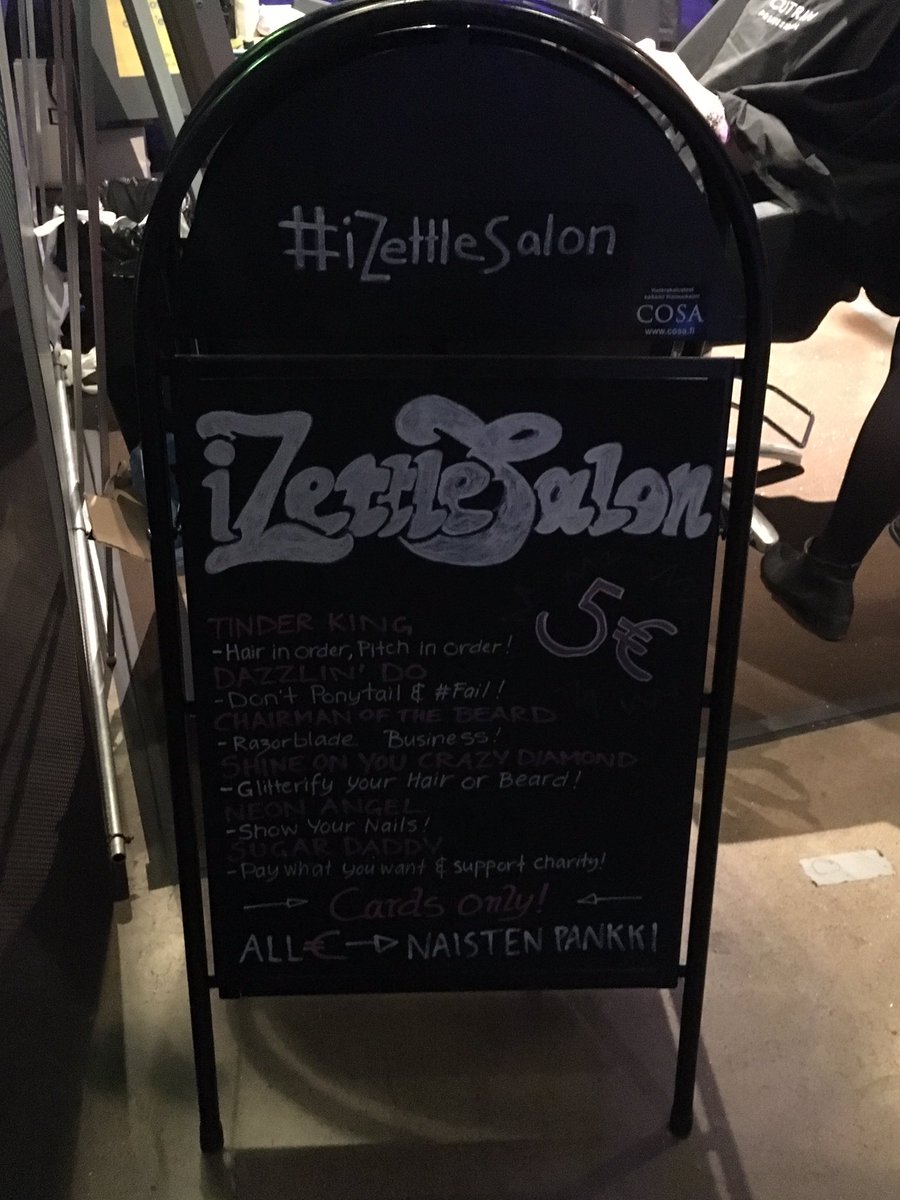 #iZettleSalon
COSA
www.cosa.fi
iZettleSalon
5€
TINDER KING
-Hair in order, Pitch in order!
DAZZLIN' DO
-Don't Ponytail & #Fail!
CHAIRMAN OF THE BEARD
-Razorblade Business!
SHINE ON YOU CRAZY DIAMOND
-Glitterify your Hair or Beard!
NEON ANGEL
-Show Your Nails!
SUGAR DADDY
-Pay what you want & support charity!
Cards only!
ALL € → NAISTEN PANKKI